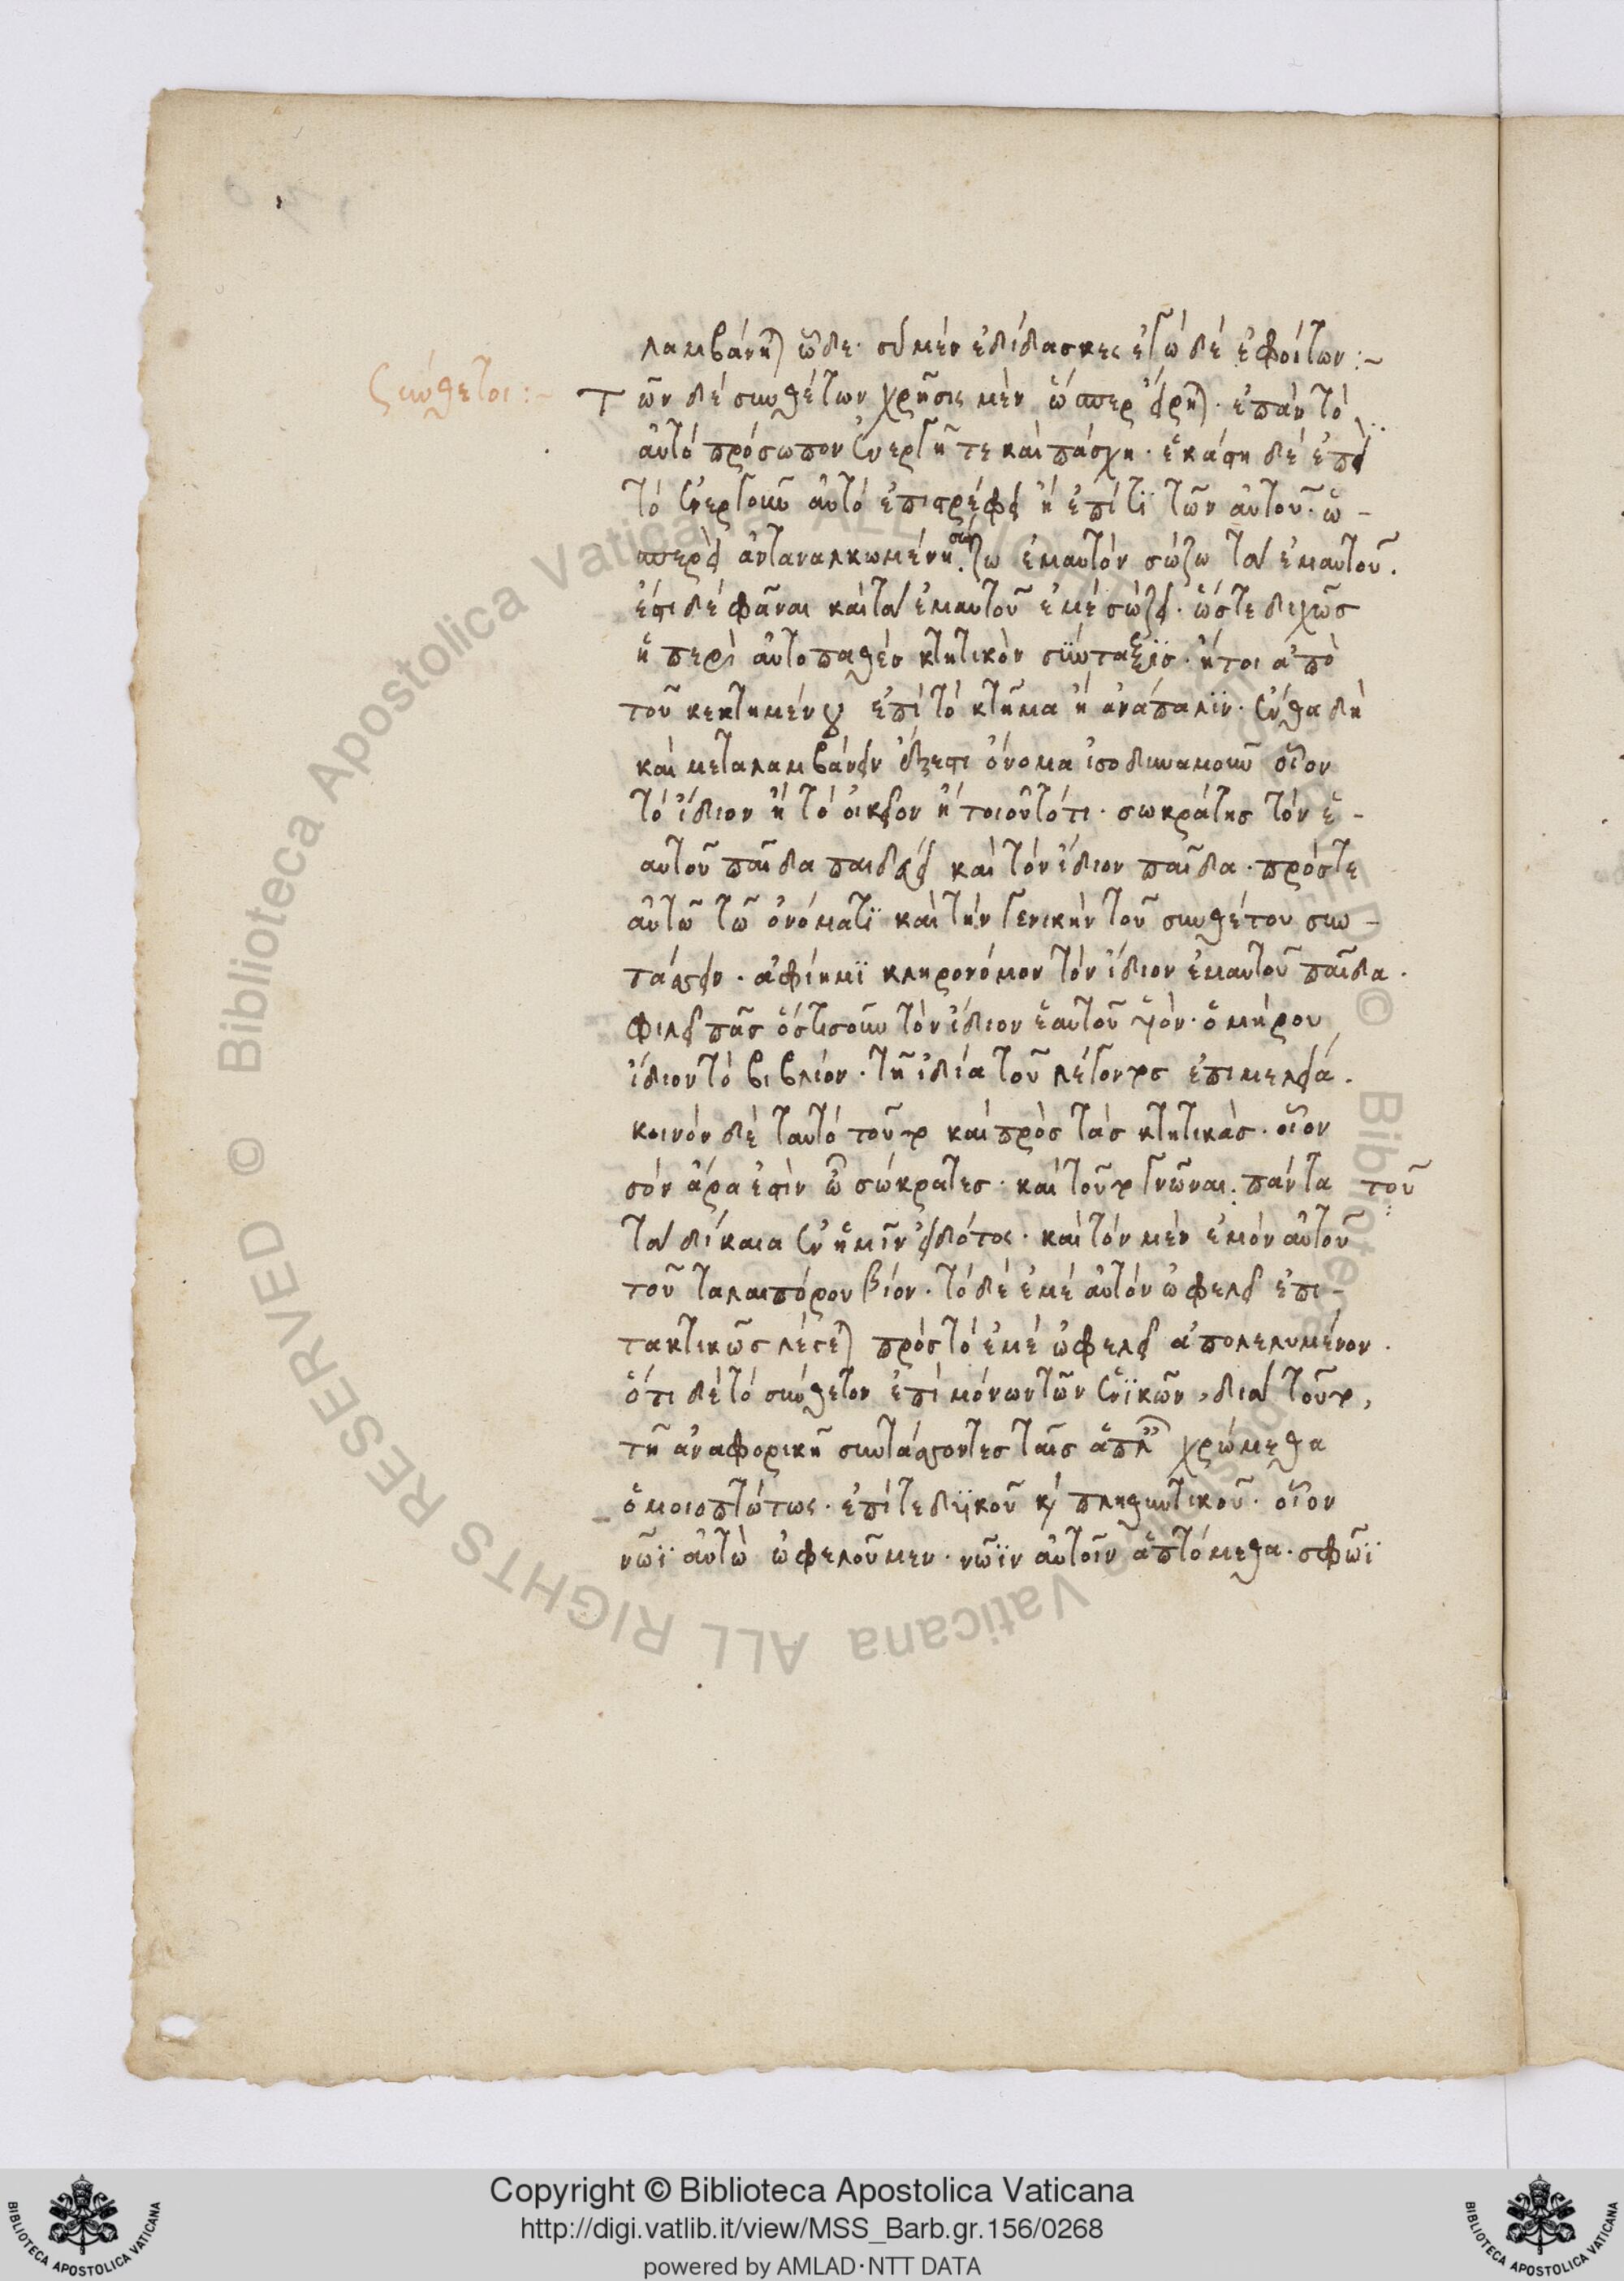 λαμβάνηται ὧδε· σὺ μὲν ἐδίδασκες ἐγὼ δὲ ἐφοίτων:~
Συνθετοι:~
Τῶν δὲ συνθέτων χρῆσις μὲν ὥσπερ εἴρηται· ἐπὰν τὸ
αὐτὸ πρόσωπον ἐνεργῆ τε καὶ πάσχη· ἑκάστη δὲ ἐπεὶ
τὸ ἐνεργοῦν αὐτὸ ἐπιστρέφει ἢ ἐπί τι τῶν αὐτοῦ· ὥ-
σπερεὶ ἀντανακλωμένη. σώζω ἐμαυτὸν σώζω τὰ ἐμαυτοῦ.
ἔστι δὲ φᾶναι καὶ τὰ ἐμαυτοῦ ἐμὲ σώζει· ὥστε διχῶς
ἡ περὶ αὐτοπαθὲς κτητικὸν σύνταξις· ἤτοι ἀπὸ
τοῦ κεκτημένου ἐπὶ τὸ κτῆμα ἢ ἀνάπαλιν· ἔνθα δὴ
καὶ μεταλαμβάνειν ἔξεστι ὄνομα ἰσοδυναμοῦν οἷον
τὸ ἴδιον ἢ τὸ οἰκεῖον ἢ τοιοῦτό τι· σωκράτης τὸν ἑ-
αυτοῦ παῖδα παιδεύει καὶ τὸν ἴδιον παῖδα· πρός τε
αὐτῶ τῶ ὀνόματι καὶ τὴν γενικὴν τοῦ συνθέτου συν-
τάσσειν· ἀφίημι κληρονόμον τὸν ἴδιον ἐμαυτοῦ παῖδα·
φιλεῖ πᾶς ὁστισοῦν τὸν ἴδιον ἑαυτοῦ υἱόν· ὁμήρου
ἴδιον τὸ βιβλίον· τῆ ἰδία τοῦ λέγοντος ἐπιμελεία·
κοινὸν δὲ ταυτὸ τοῦτο καὶ πρὸς τὰς κτητικάς· οἷον
σὸν ἄρα ἐστὶν ὦ σώκρατες· καὶ τοῦτο γνῶναι· πάντα τοῦ
τὰ δίκαια ἐν ἡμῖν εἰδότος· καὶ τὸν μὲν ἐμὸν αὐτοῦ
τοῦ ταλαιπόρου βίον· τὸ δὲ ἐμὲ αὐτὸν ὠφελεῖ ἐπι-
τακτικῶς λέγεται πρὸς τὸ ἐμὲ ὠφελεῖ ἀπολελυμένον·
ὅτι δὲ τὸ σύνθετον ἐπὶ μόνων τῶν ἑνικῶν, διὰ τοῦτο,
τῆ ἀναφορικῆ συντάσσοντες ταῖς ἁπλαῖς χρώμεθα
ὁμοιοπτώτως· ἐπί τε δυϊκοῦ καὶ πληθυντικοῦ· οἷον
νῶϊ αὐτὼ ὠφελοῦμεν· νῶϊν αὐτοῖν ἁπτόμεθα· σφῶϊ
Copyright © Biblioteca Apostolica Vaticana
http://digi.vatlib.it/view/MSS_Barb.gr.156/0268
powered by AMLAD·NTT DATA
BIBLIOTECA APOSTOLICA VATICANA
BIBLIOTECA APOSTOLICA VATICANA
© Biblioteca Apostolica Vaticana ALL RIGHTS RESERVED © Biblioteca Apostolica Vaticana ALL RIGHTS RESERVED